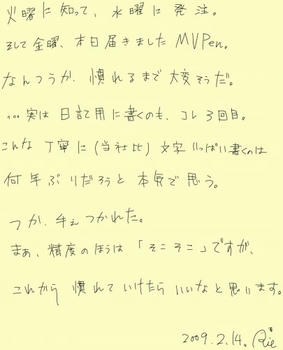 火曜に知って、水曜に発注。
そして金曜、本日届きました MVPen。
なんつうか、慣れるまで大変そうだ。
…実は日記用に書くのも、コレ3回目。
こんな丁寧に(当社比)文字いっぱい書くのは
何年ぶりだろうと本気で思う。
つか、手ェつかれた。
まあ、精度のほうは「そこそこ」ですが、
これから慣れていけたらいいなと思います。
2009.2.14. Rie